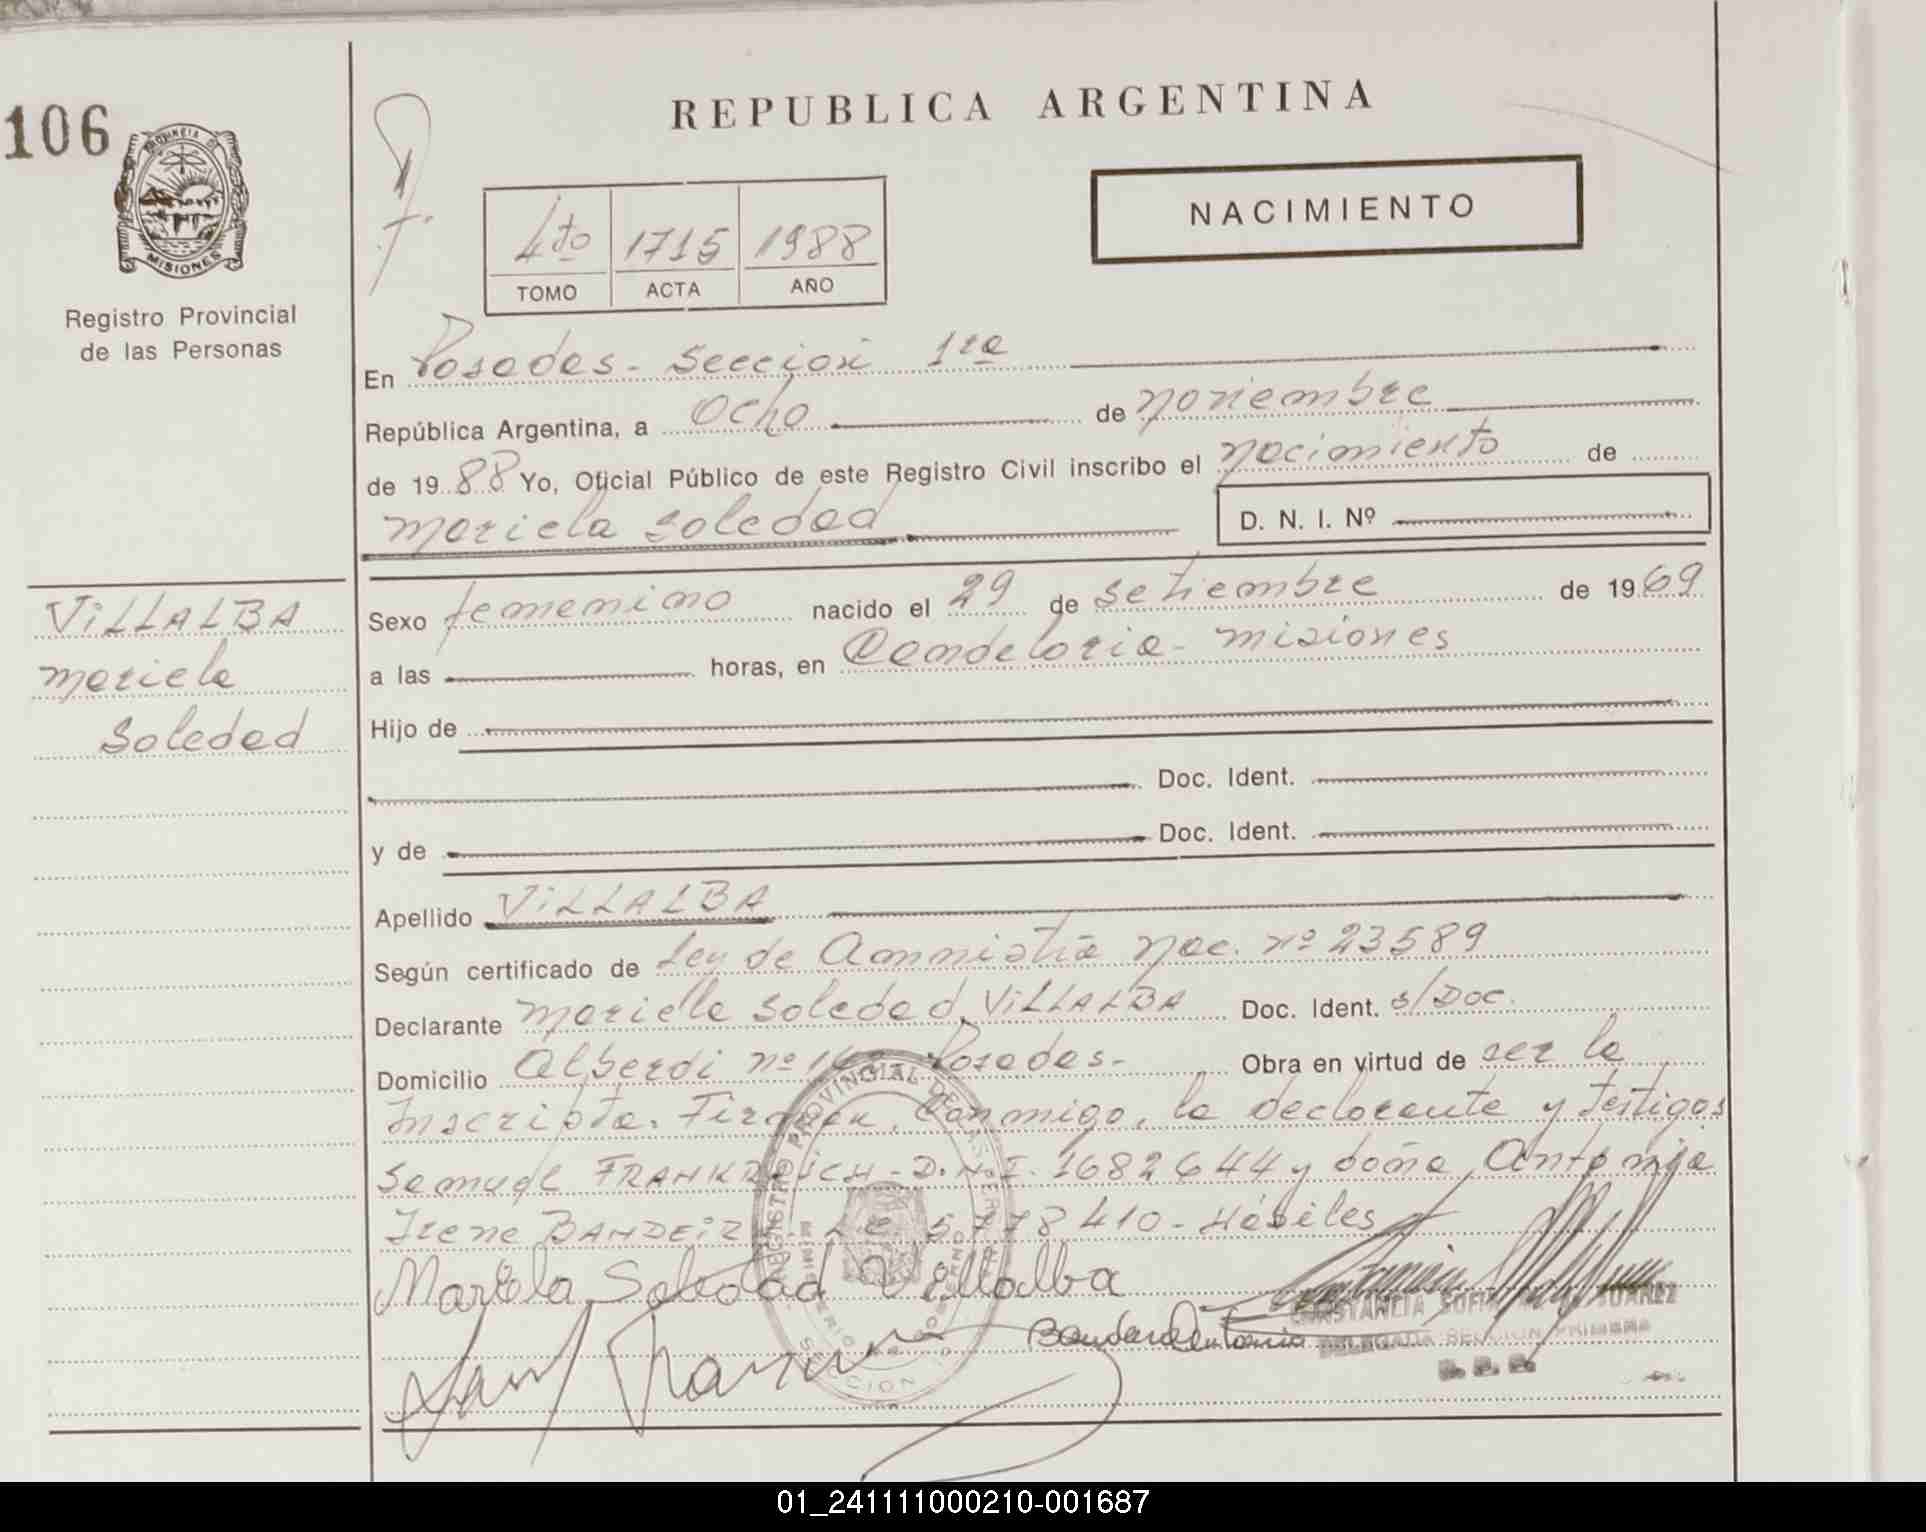 106
PROVINCIA DE
MISIONES
Registro Provincial
de las Personas
REPUBLICA ARGENTINA
NACIMIENTO
4to 1715 1988
TOMO ACTA AÑO
En Posadas - Sección 1ra
República Argentina, a Ocho de noviembre
de 1988 Yo, Oficial Público de este Registro Civil inscribo el nacimiento de
Mariela Soledad
D. N. I. Nº
VILLALBA
Mariela
Soledad
Sexo femenino nacido el 29 de setiembre de 1969
a las horas, en Candelaria - Misiones
Hijo de
Doc. Ident.
y de Doc. Ident.
Apellido VILLALBA
Según certificado de Ley de Amnistía Nac. nº 23589
Declarante Mariela Soledad VILLALBA Doc. Ident. s/Doc.
Domicilio Alberdi nº Posadas - Obra en virtud de ser la
Inscripta. Firman, Conmigo, la declarante y testigos
Samuel - D.N.I. 1682644 y doña Antonia
Irene 5.778410 - Hábiles
Mariela Soledad Villalba
Bandera Antonia
CONSTANCIA SUAREZ
DELEGADA SECCION PRIMERA
01_241111000210-001687